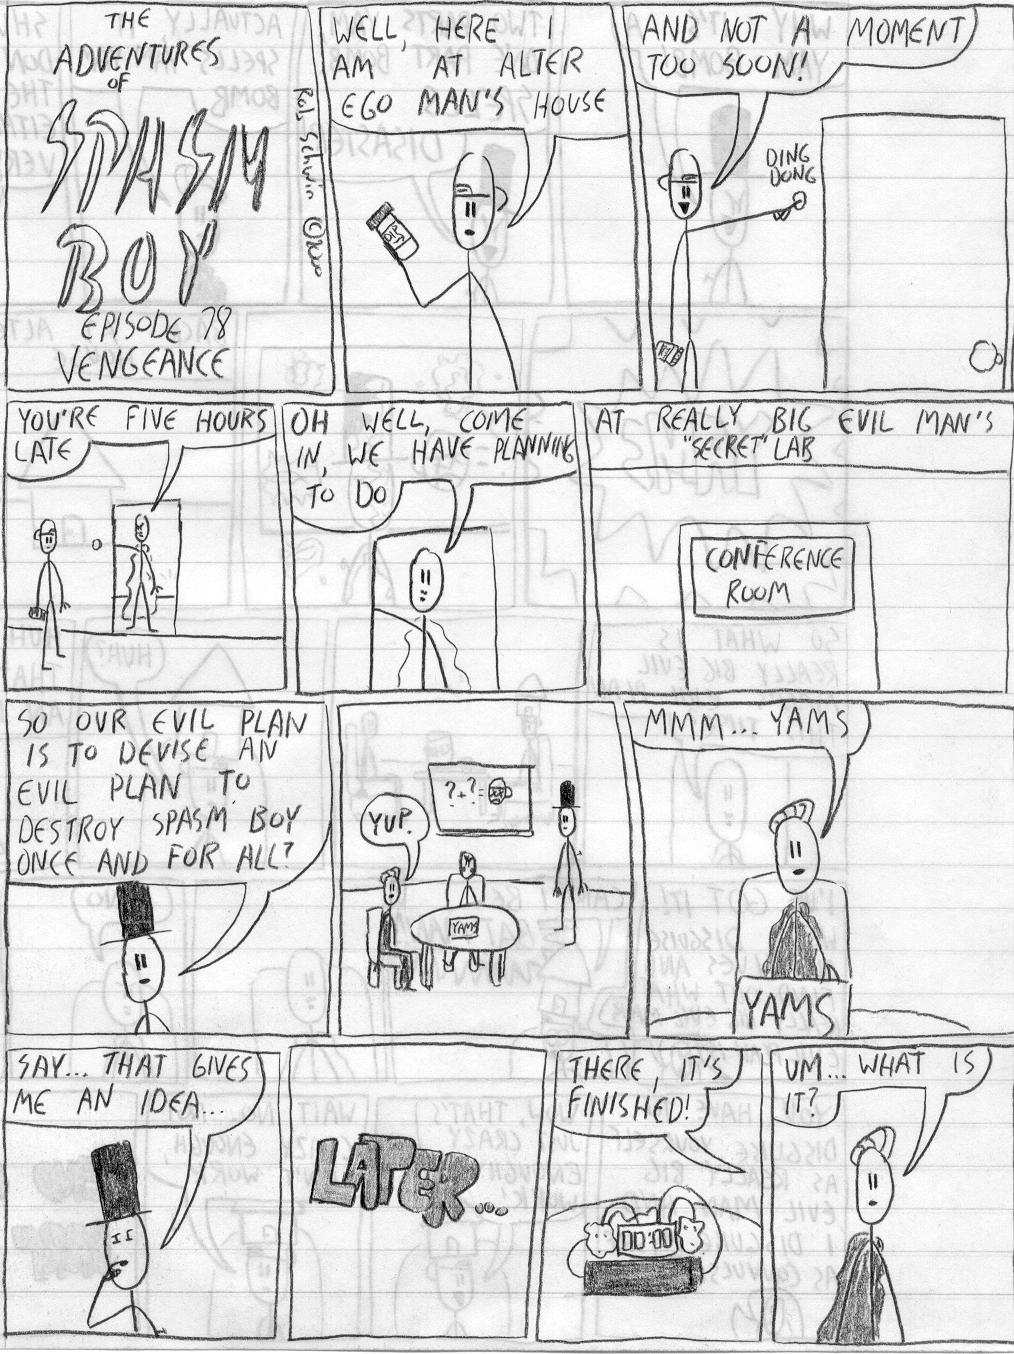 THE
ADVENTURES
OF
SPASM
BOY
EPISODE 78
VENGEANCE
Rob Schwin ©2000
WELL, HERE I
AM AT ALTER
EGO MAN'S HOUSE
AND NOT A MOMENT
TOO SOON!
DING
DONG
YOU'RE FIVE HOURS
LATE
OH WELL, COME
IN, WE HAVE PLANNING
TO DO
AT REALLY BIG EVIL MAN'S
"SECRET" LAB
CONFERENCE
ROOM
SO OUR EVIL PLAN
IS TO DEVISE AN
EVIL PLAN TO
DESTROY SPASM BOY
ONCE AND FOR ALL?
?+?=
YUP.
YAMS
MMM... YAMS
YAMS
SAY... THAT GIVES
ME AN IDEA...
LATER...
THERE, IT'S
FINISHED!
00:00
UM... WHAT IS
IT?